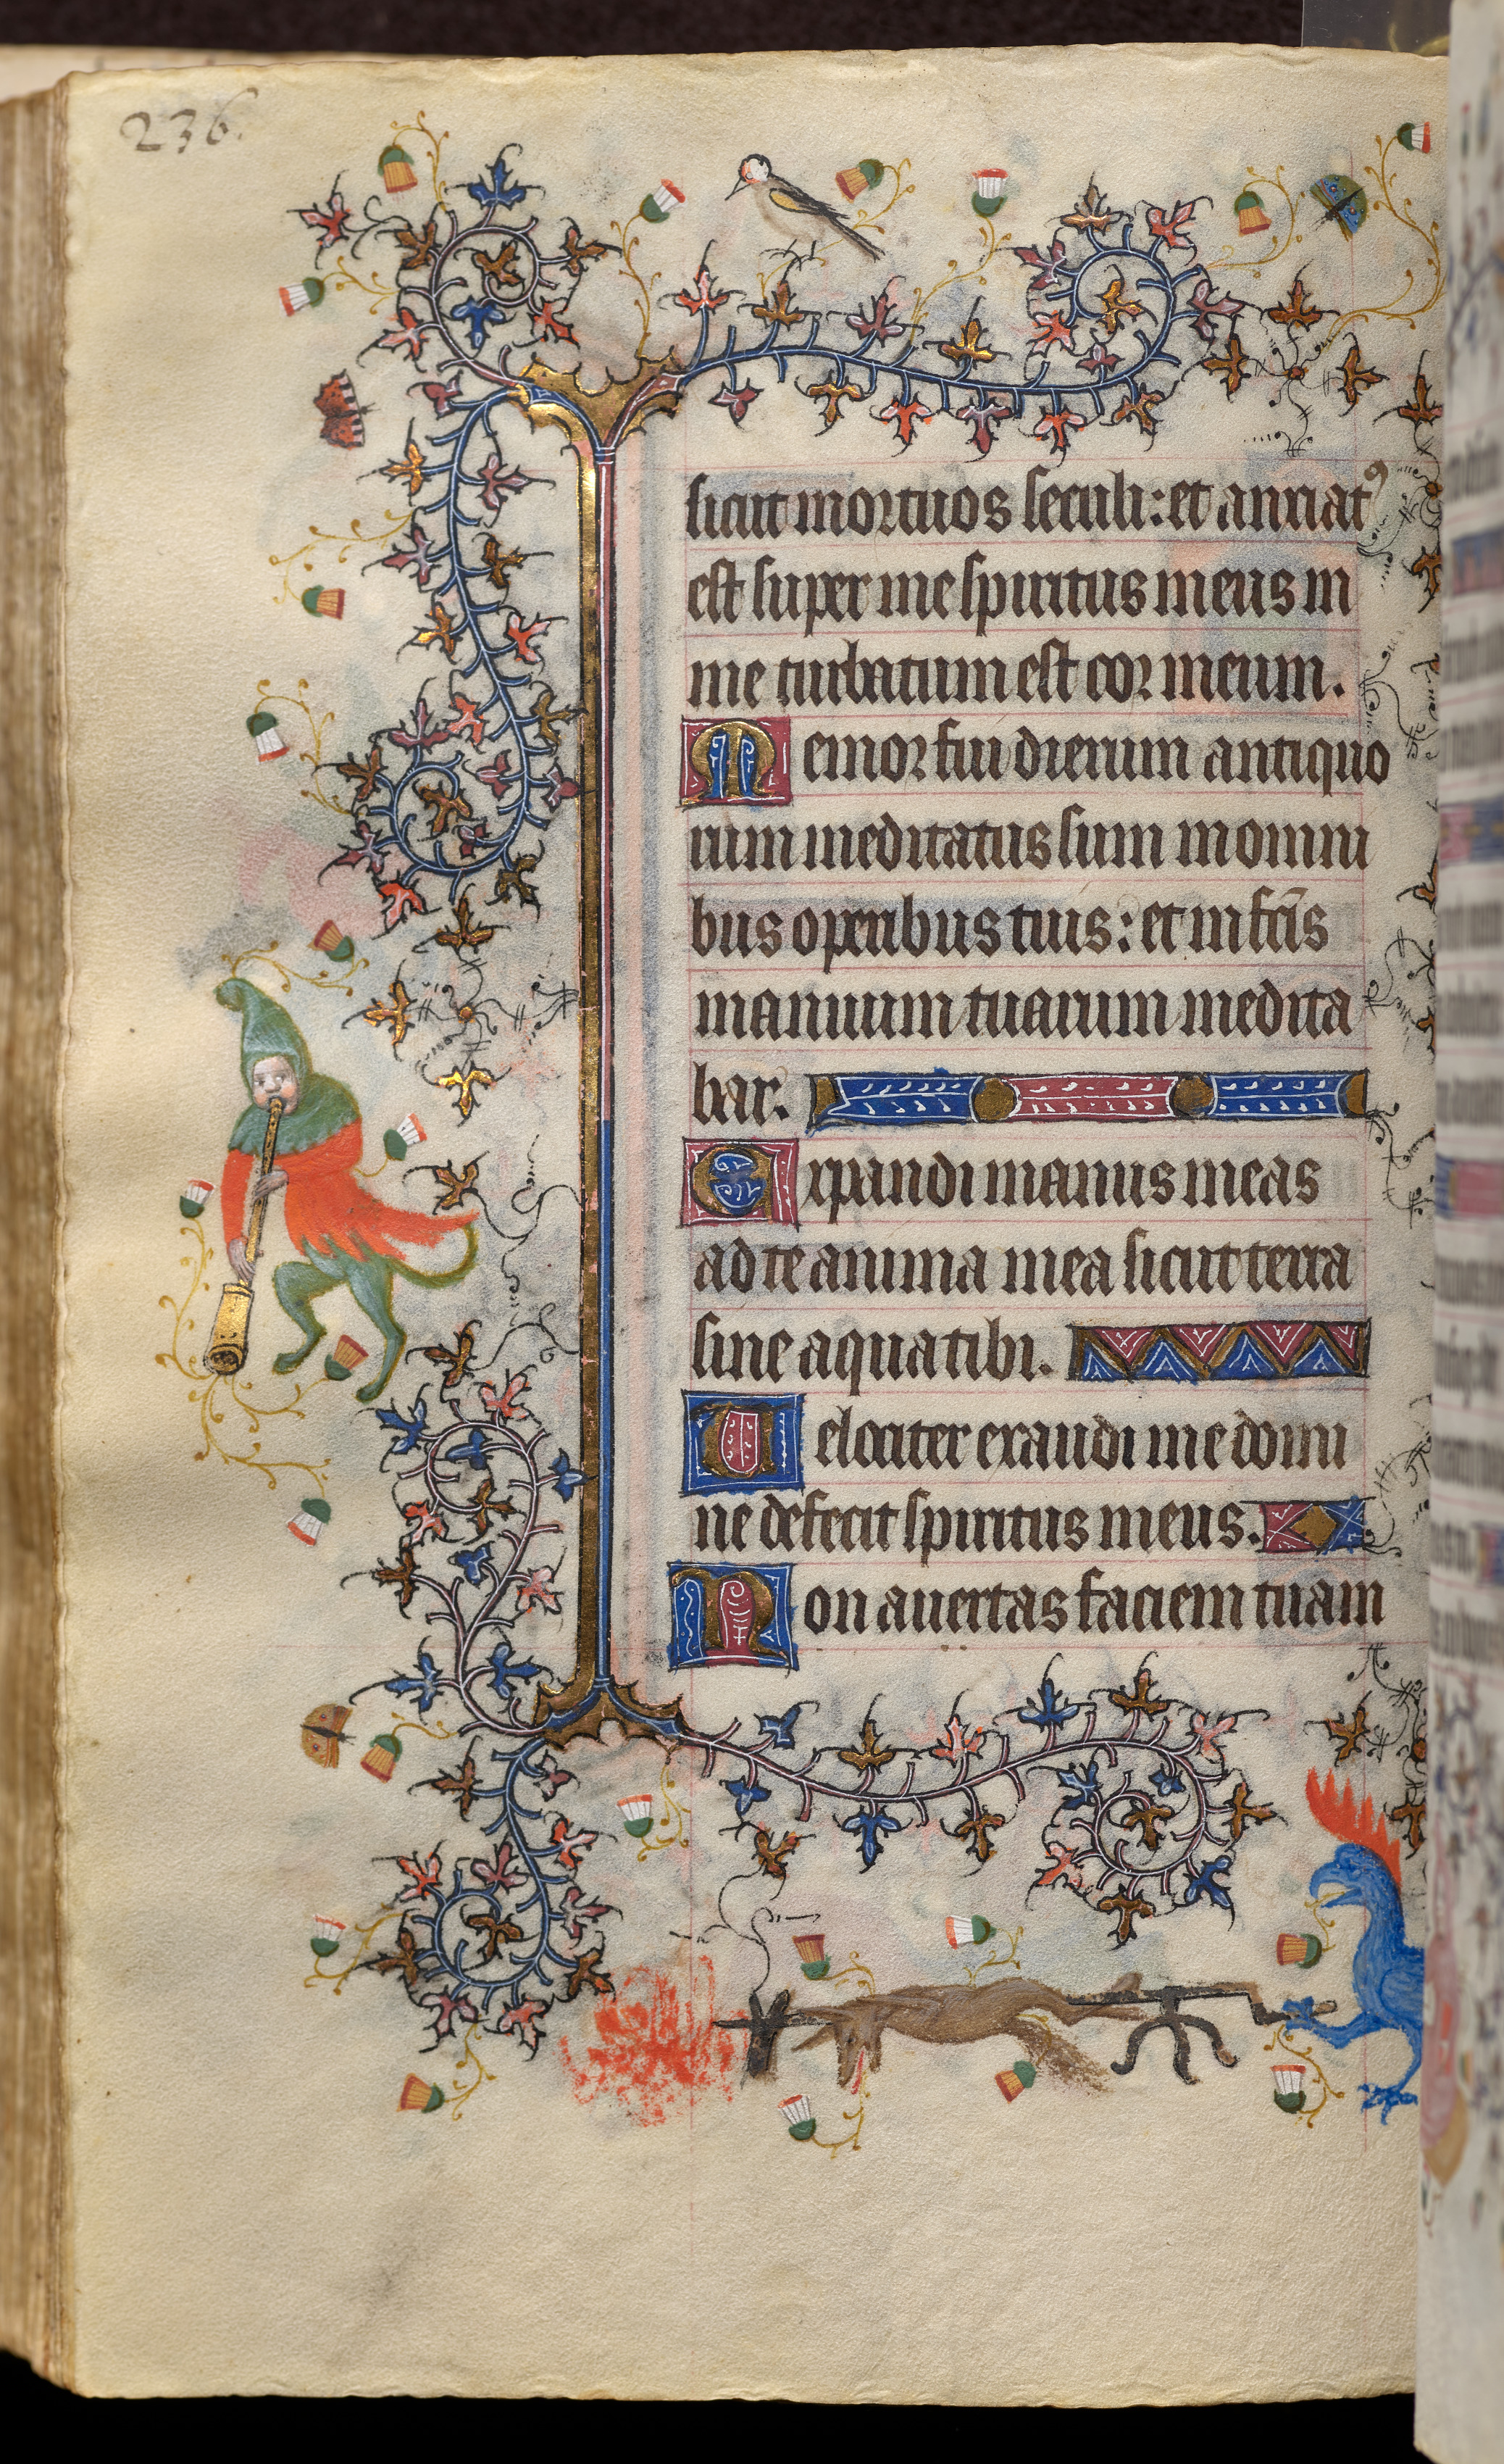 236.
sicut mortuos seculi: et anxiatꝰ
est super me spiritus meus in
me turbatum est cor meum.
Memor fui dierum antiquo
rum meditatus sum in omni
bus operibus tuis: et in fc̄is
manuum tuarum medita
bar.
Expandi manus meas
ad te anima mea sicut terra
sine aqua tibi.
Uelociter exaudi me domi
ne defecit spiritus meus.
Non auertas faciem tuam